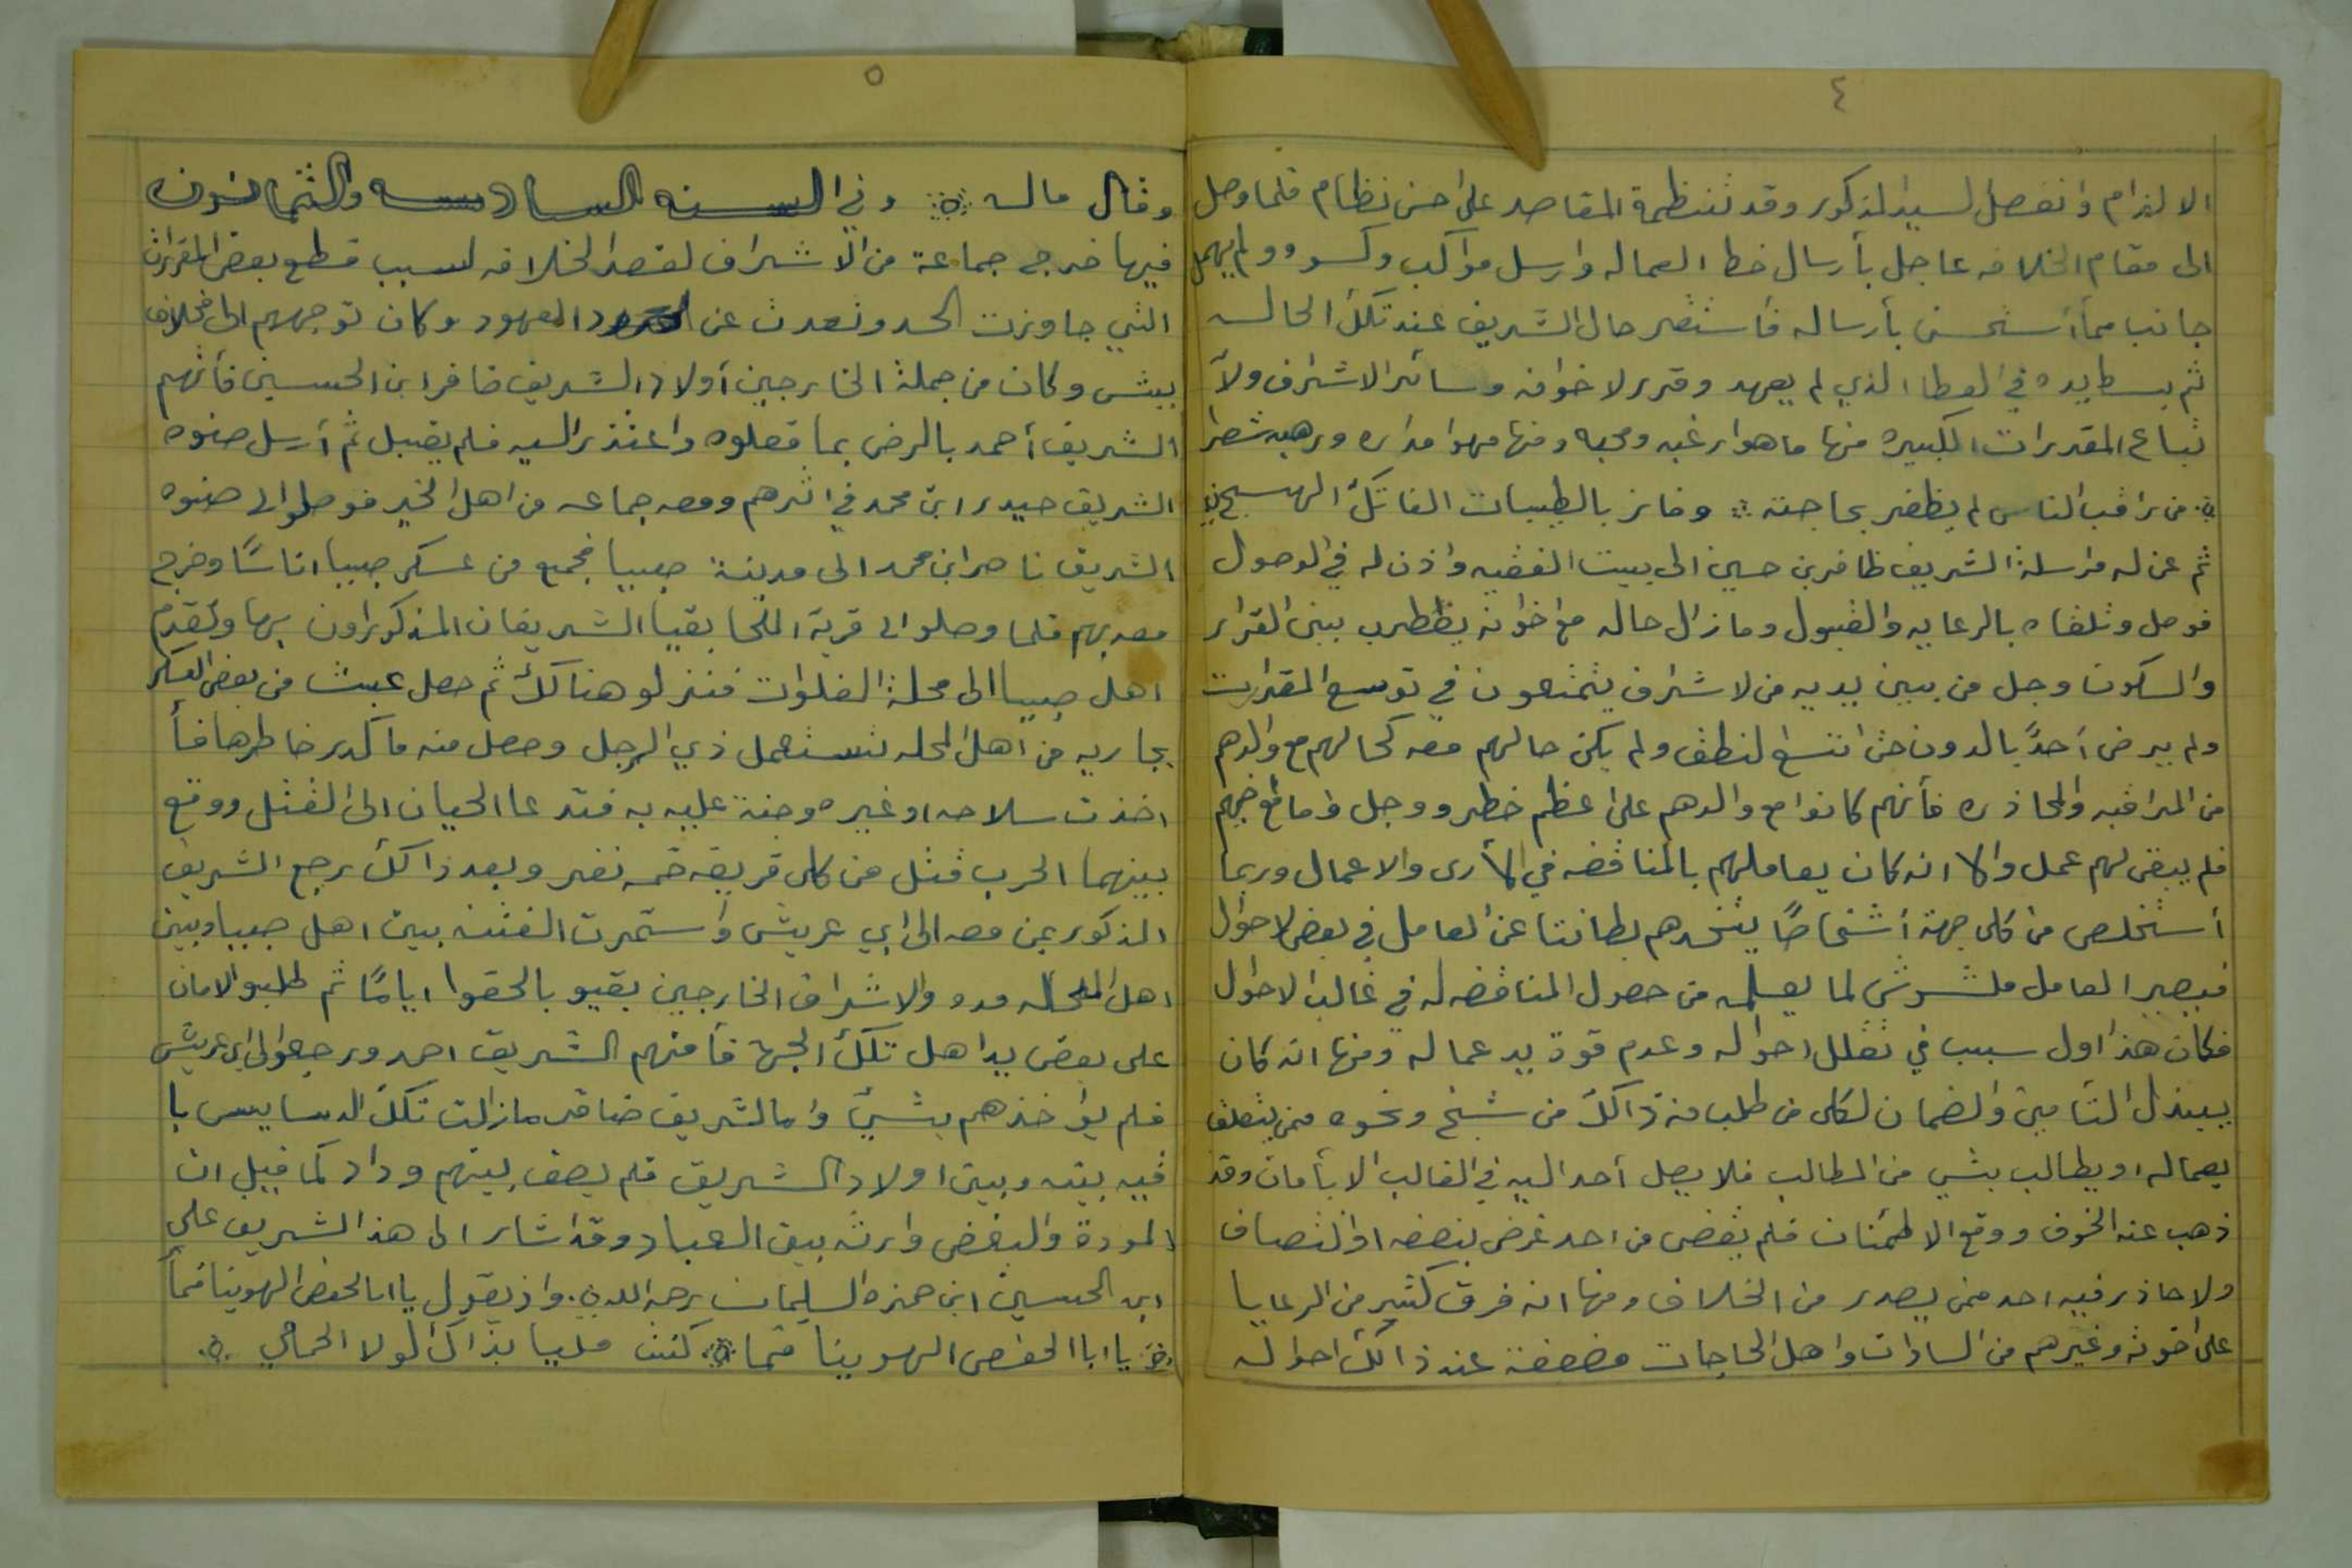 ٤
الالتزام وانفصل السيد المذكور وقد تنتظمة المقاصد على احسن نظام فلما وصل
الى مقام الخلافه عاجل بأرسال خط العماله وارسل مواكب وكسوه ولم يهمل
جانبا مما أستحسن بأرساله فأستقر حال الشريف عند تلك الحاله
ثم بسط يده في العطا الذي لم يعهد وقرر لاخوانه وسائر الاشراف ولأ
تباع المقدرات الكبيره منها ما هوارغبه ومحبه ومنها مهوا مداره ورهبه شطر
من راقب الناس لم يظفر بحاجته وفاز بالطيبات الفاتك الهسج
ثم عن له مراسلة الشريف ظافر بن حسين الى بيت الفقيه واذن له في الوصول
فوصل وتلقاه بالرعايه والقبول ومازال حاله مع اخوانه يظطرب بين القرار
والسكون وجل من بين يديه من لاشراف يتمتعون في توسع المقررات
ولم يرض أحدً بالدون حتى اتسع لنطق ولم يكن حالهم معه كحالهم مع والدهم
من المراقبه والمحاذره فأنهم كانوا مع والدهم على اعظم خطر ووجل
فلم يبقى لهم عمل والا انه كان يعاملهم بالمناقضه في الأرى والاعمال وربما
أستخلص من كل جهة أشخاصًا يتخدهم بطانتا عن العامل في بعض لاحوال
فيصير العامل ملشوش لما يعلمه من حصول المناقضه له في غالب الاحوال
فكان هذا اول سبب في تقلل احواله وعدم قوة يد عماله ومنها انه كان
يبذل التأمين والضمان لكل من طلب منه ذالك من شيخ ونحوه ممن يتعلق
بعماله او يطالب بشي من المطالب فلا يصل أحد اليه في الغالب الا بأمان وقد
ذهب عنه الخوف ووقع الاطمئنان فلم يقض من احد غرض بنصفه اوانتصاف
ولا حاذر فيه احد ممن يصدر من الخلاف ومنها انه فرق كثير من الرعايا
على اخوته وغيرهم من السادات واهل الحاجات فضعفة عند ذالك احواله
٥
وقال ماله وفي السنه السادسه والثمانون
فيها خرج جماعة من الاشراف لقصد الخلافه لسبب قطع بعض المقررات
التي جاوزت الحد وتعدت عن المعهود وكان توجههم الى مخلاف
بيش وكان من جملة الخارجين أولاد الشريف ضافر ابن الحسين فأتهم
الشريف أحمد بالرض بما فعلوه واعتذر اليه فلم يقبل ثم أرسل صنوه
الشريف حيدر ابن محمد في اثرهم ومعه جماعه من اهل الخير فوصلو الى صنوه
الشريف ناصر ابن محمد الى مدينة صبيا فجمع من عسكر صبيا اناسًا وخرج
معه بهم فلما وصلو الى قرية الملحا بقيا الشريفان المذكرارون بها وتقدم
اهل صبيا الى محلة الغلوات فنزلو هنالك ثم حصل عبث من بعض العسكر
بجاريه من اهل المحله تستعمل ذي الرجل وحصل منه ما كدر خاطرها فأ
اخذت سلاحه اوغيره وجنة عليه به فتدعا الحيان الى القتل ووقع
بينهما الحرب قتل من كل فريقه خمه نفر وبعد ذالك رجع الشريف
المذكور بمن معه الى ابي عريش وأستمرت الفتنه بين اهل صبيا وبين
اهل المحله مده والاشراف الخارجين بقيو بالحقوا ايامًا ثم طلبو الامان
على بعض يد اهل تلك الجهة فأمنهم الشريف احمد ورجعو الى ابي عريش
فلم يؤاخذهم بشيئ وامالشريف ضافر مازالت تلك الدسايس با
قيه بينه وبين اولاد الشريف فلم يصف بينهم وداد كما قيل ان
المودة والبغض وارثه بين العباد وقد اشار الى هذا الشريف علي
ابن الحسين ابن حمزه السليمان رحمه الله. واذ يقول يا ابا الحفص الهوينا فمأ
يا ابا الحفص الهوينا فما كنت مليا بذاك لولا الحمالي